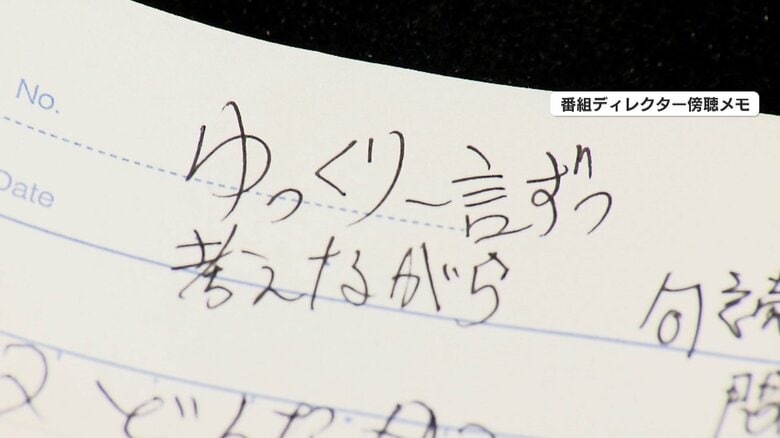 番組ディレクター傍聴メモ
No.
ゆっくり一言ずつ
Date
考えながら
句読
問
どんなか